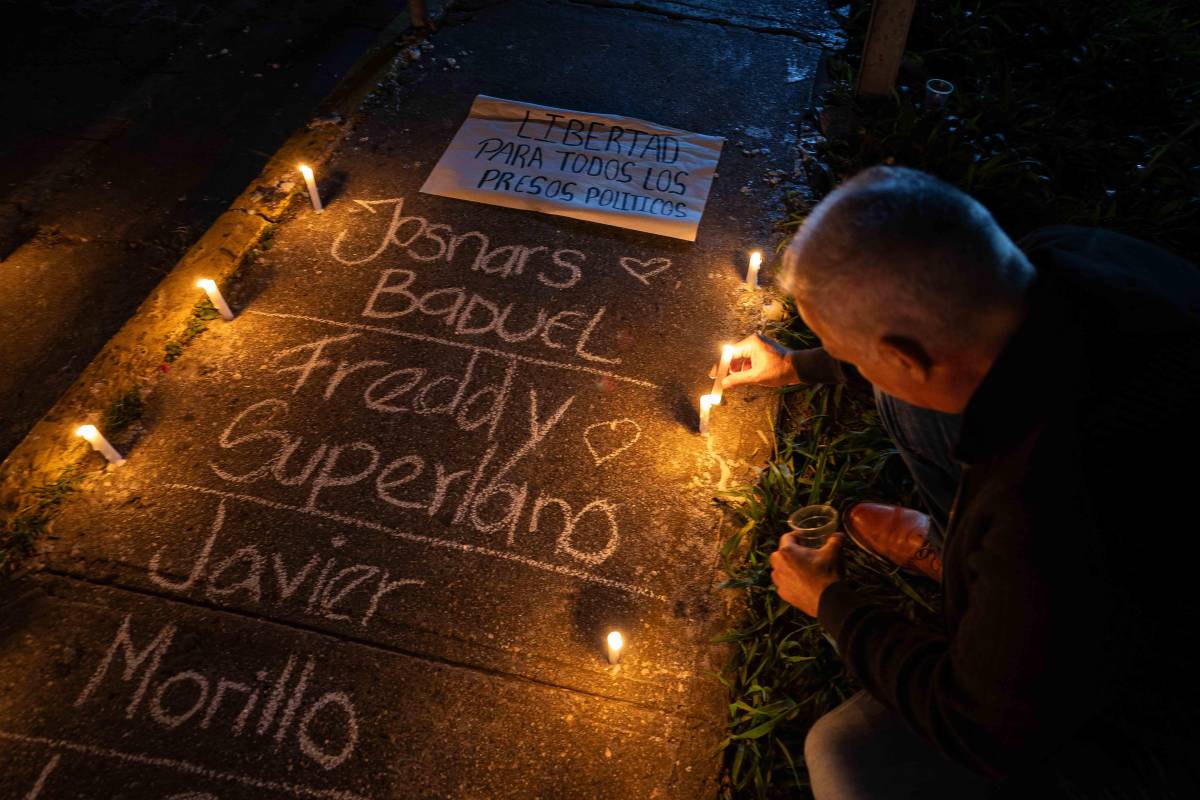 LIBERTAD
PARA TODOS LOS
PRESOS POLITICOS
Josnars
BADUEL
Freddy
Superlano
Javier
Morillo